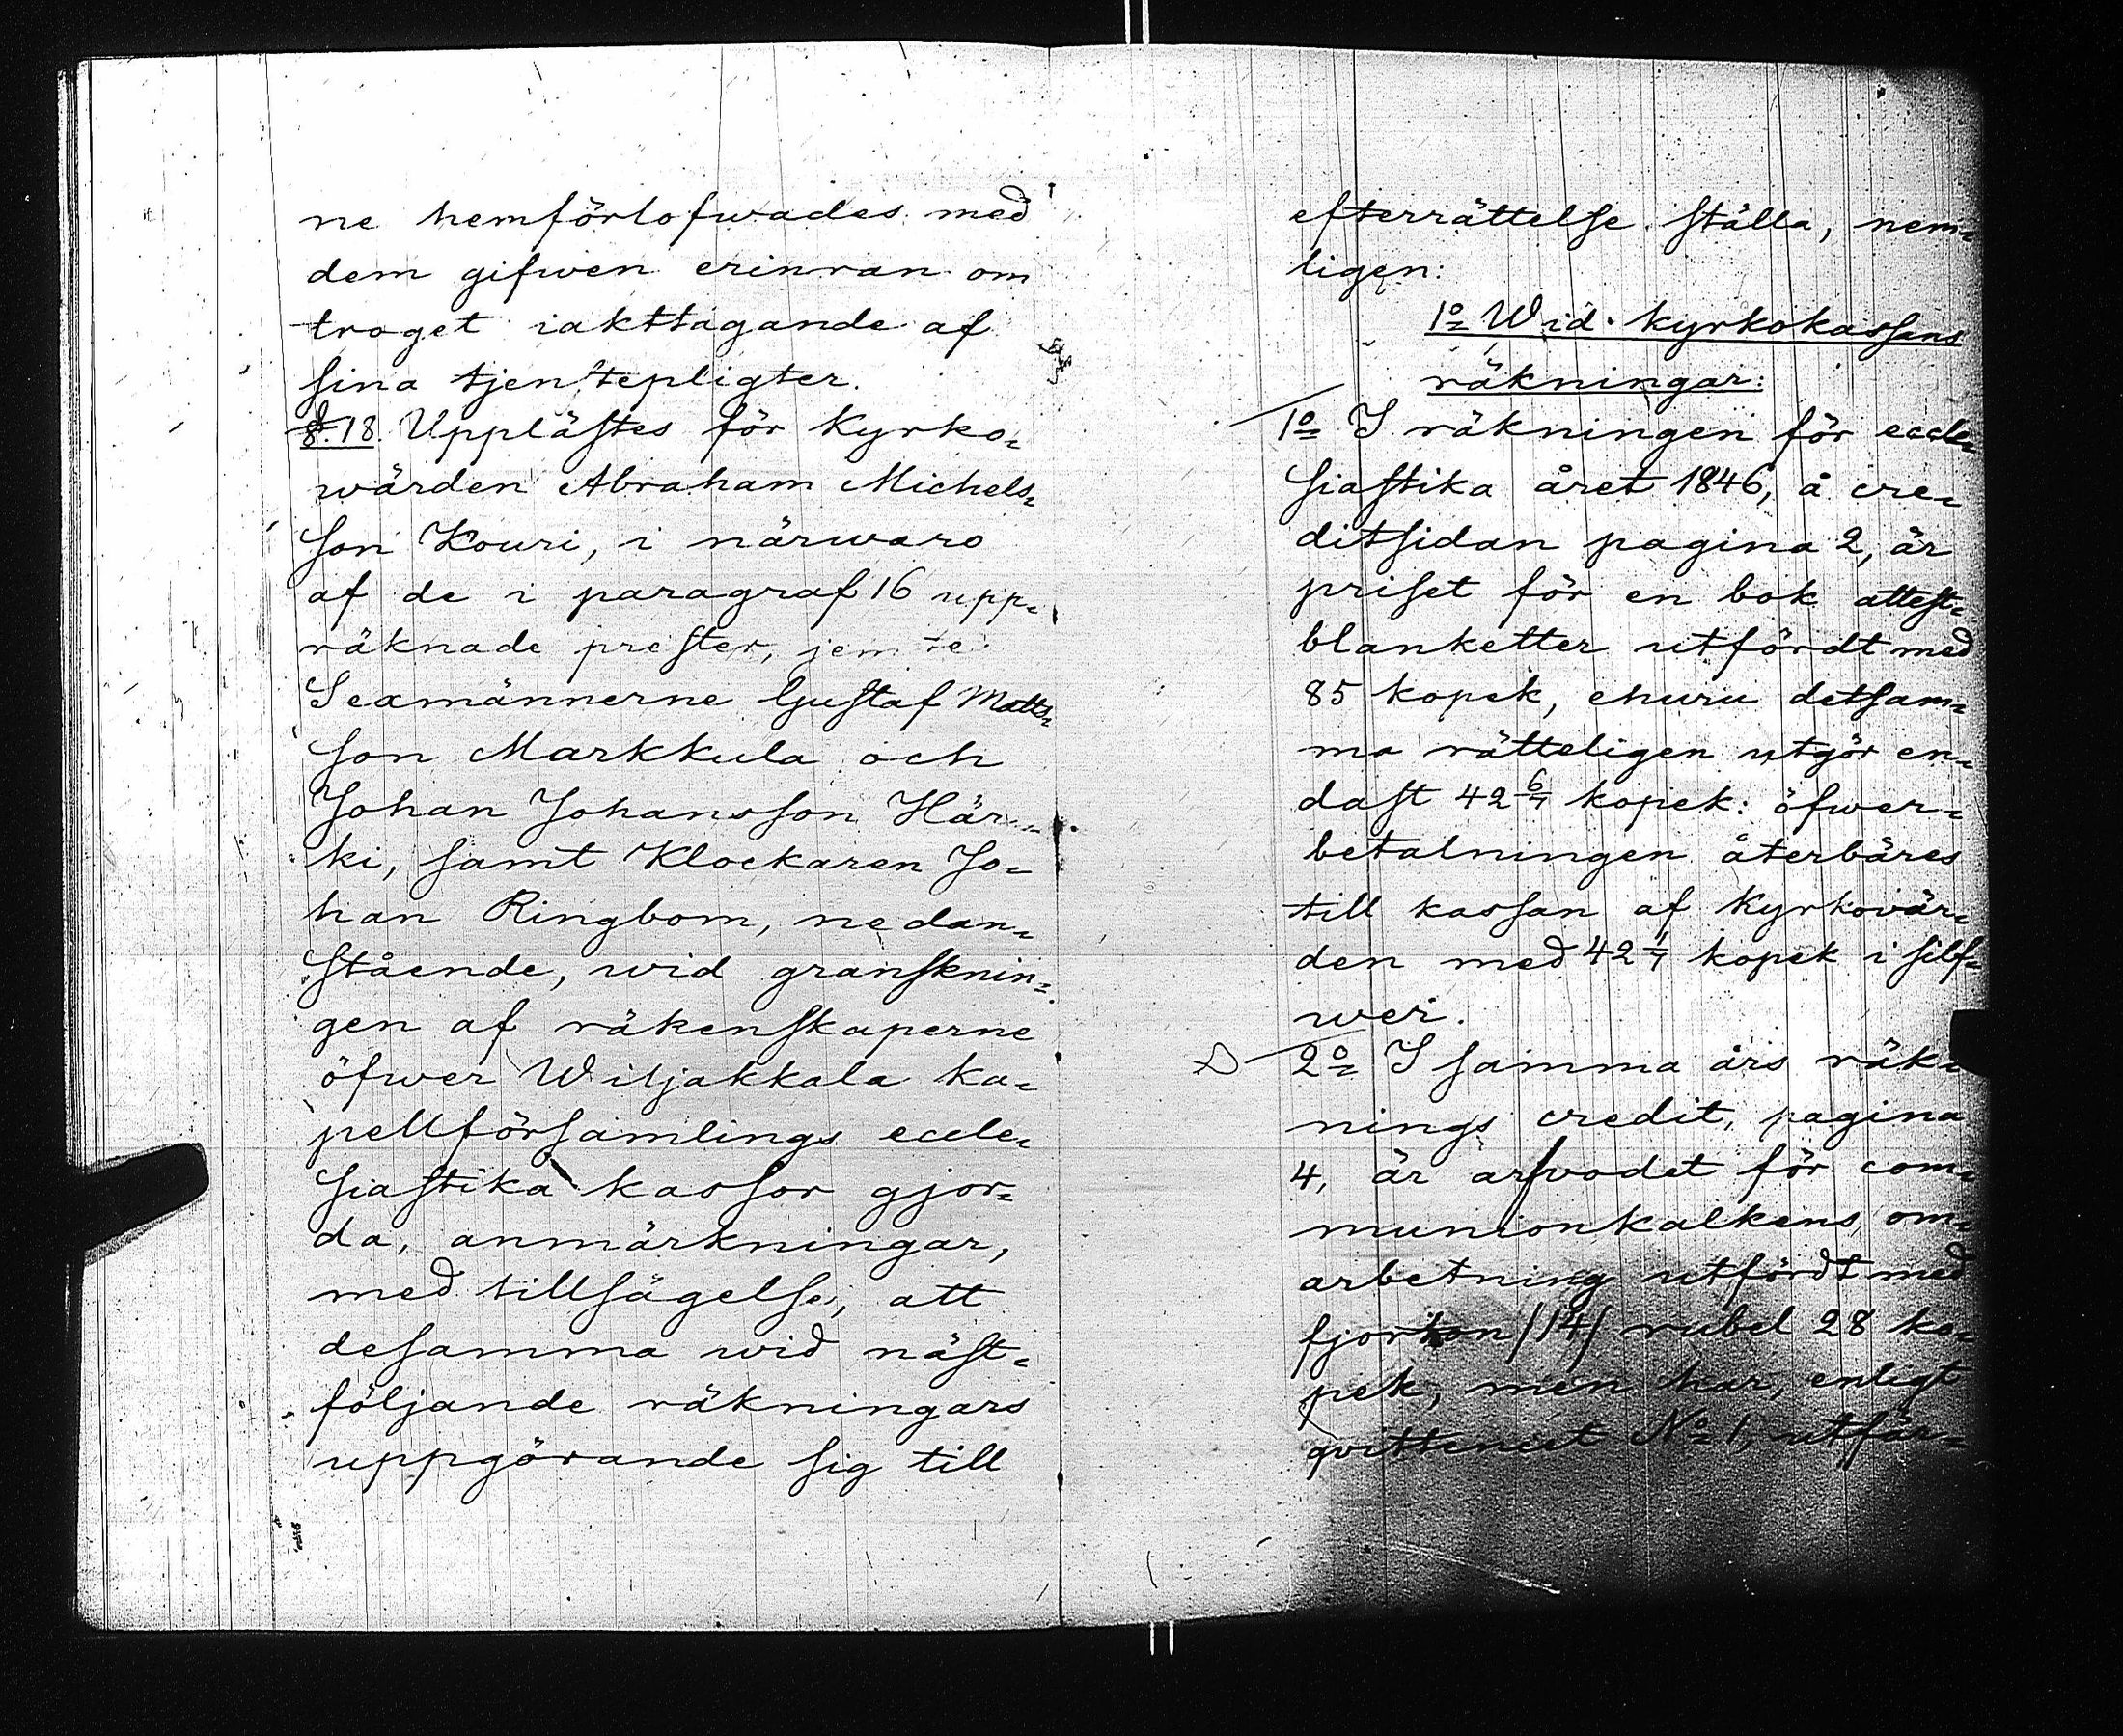 ne hemförlofwades med
dem gifwen erinran om
troget iakttagande af
sina tjenstepligter.
§. 18. Upplästes för Kyrko=
wärden Abraham Michels=
son Kouri, i närwaro
af de i paragraf 16 upp=
räknade prester, jemte
Sexmännerne Gustaf Matts=
son Markkula och
Johan Johansson Här=
ki, samt Klockaren Jo=
han Ringbom, nedan=
stående, wid gransknin=
gen af räkenskaperne
öfwer Wiljakkala ka=
pellförsamlings eccle=
siastika kassor gjor=
da, anmärkningar,
med tillsägelse, att
desamma wid näst=
följande räkningars
uppgörande sig till
efterrättelse ställa, nem=
ligen:
1o Wid Kyrkokassans
räkningar:
1o I räkningen för eccle=
siastika året 1846, å cre=
ditsidan pagina 2, är
priset för en bok attest=
blanketter utfördt med
85 kopek, ehuru detsam=
ma rätteligen utgör en=
dast 42 6/7 kopek: öfwer=
betalningen återbäres
till kassan af Kyrkovär=
den med 42 1/7 kopek i silf=
wer.
2o I samma års räk=
nings credit, pagina
4, är arfvodet för com=
munionkalkens om=
arbetning utfördt med
fjorton /14/ rubel 28 ko=
pek, men har, enligt
qvittencet No 1, utfär=